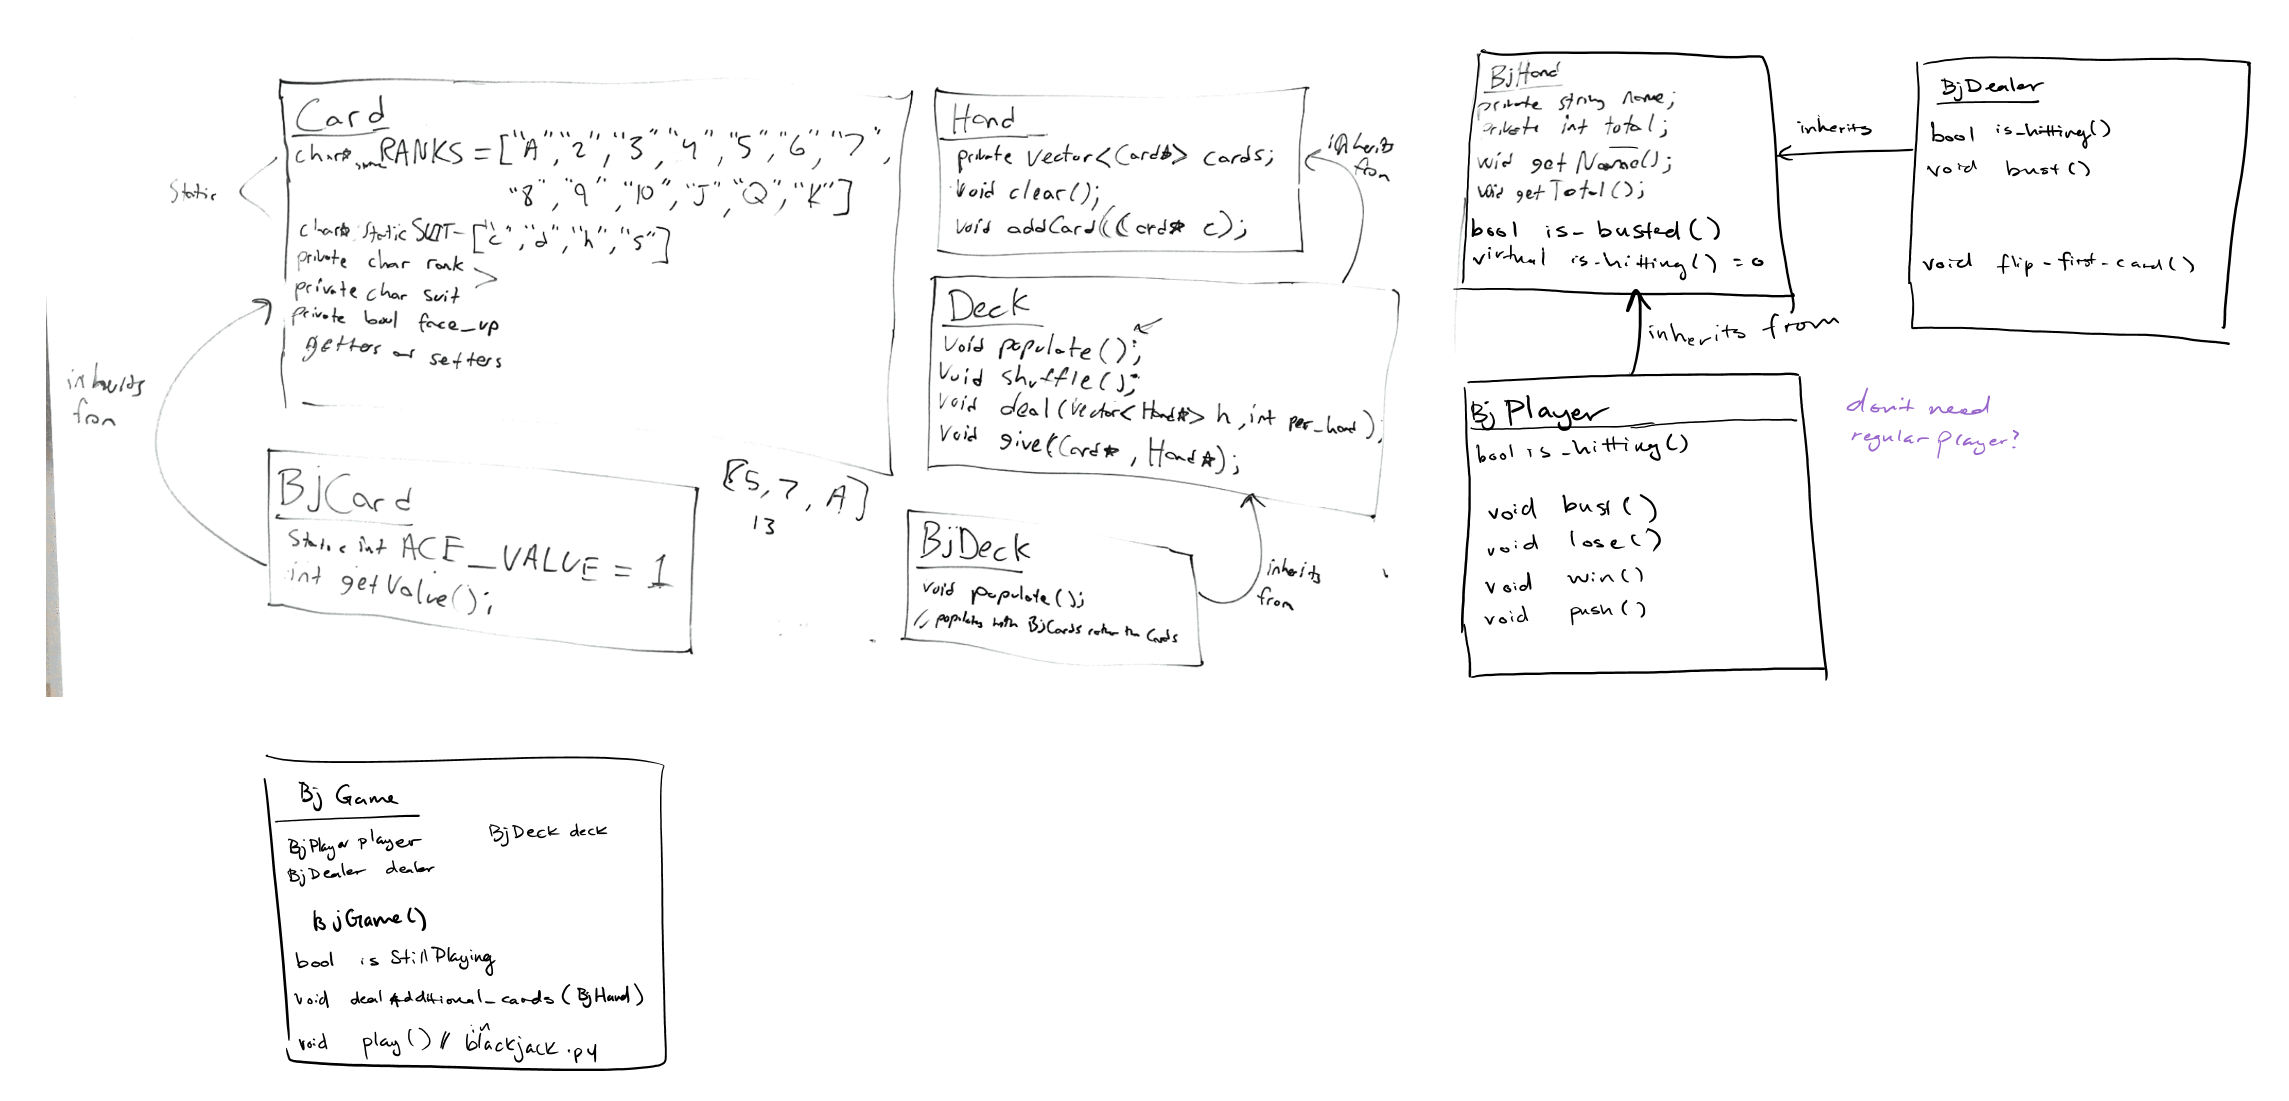 Card
char* static RANKS = ["A","2","3","4","5","6","7",
"8","9","10","J","Q","K"]
Static
char* static SUIT = ["c","d","h","s"]
private char rank
private char suit
private bool face_up
getters and setters
inherits
from
BjCard
Static int ACE_VALUE = 1
int getValue();
[5,7,A]
13
Hand
private Vector<Card*> cards;
void clear();
void addCard(Card* c);
inherits
from
Deck
void populate();
void shuffle();
void deal(Vector<Hand*> h, int per_hand);
void give(Card*, Hand*);
BjDeck
void populate();
// populates with BjCards rather than Cards
inherits
from
BjHand
private string name;
private int total;
void getName();
void getTotal();
bool is_busted()
virtual is_hitting() = 0
inherits
BjDealer
bool is_hitting()
void bust()
void flip-first-card()
inherits from
Bj Player
bool is_hitting()
void bust()
void lose()
void win()
void push()
don't need
regular player?
Bj Game
BjPlayer player
BjDealer dealer
BjDeck deck
BjGame()
bool is StillPlaying
void dealAdditional_cards (BjHand)
void play() // in blackjack.py